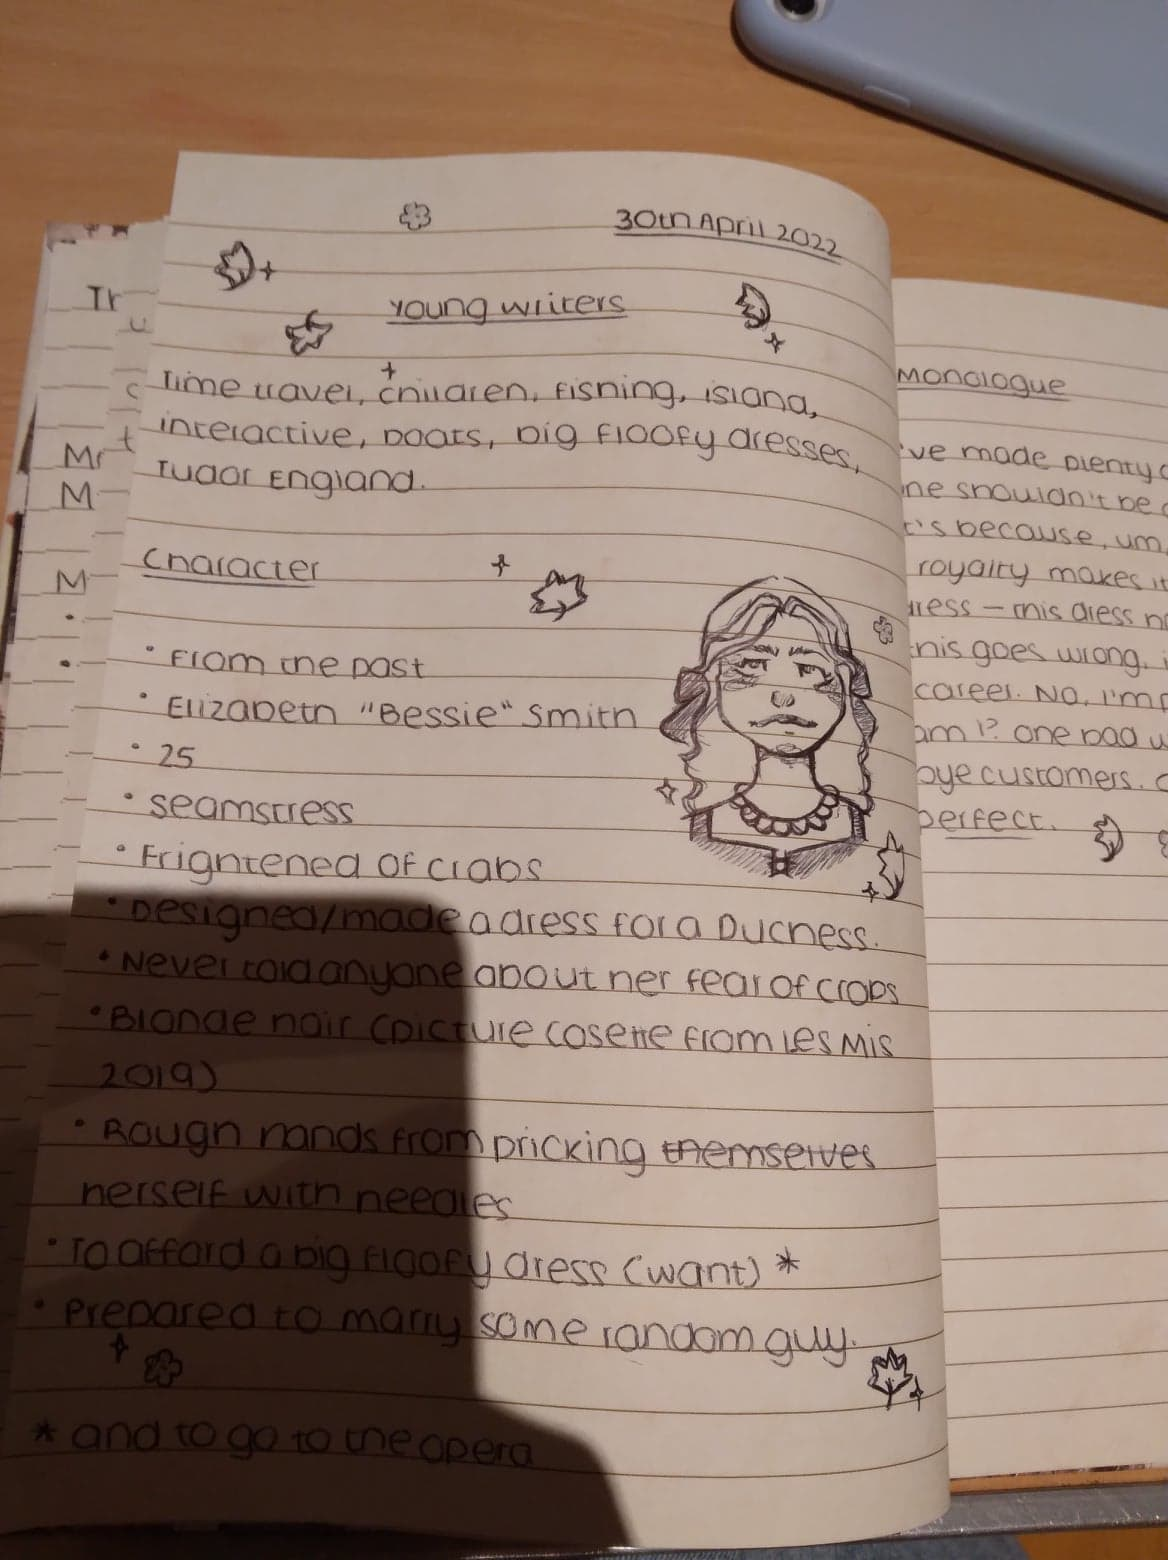 30th April 2022
Young writers
Time travel, children, fishing, island,
interactive, boats, big floofy dresses,
Tudor England.
Character
• From the past
• Elizabeth "Bessie" Smith
• 25
• Seamstress
• Frightened of crabs
• Designed/made a dress for a Duchess.
• Never told anyone about her fear of crabs
• Blonde hair (picture Cosette from Les Mis
2019)
• Rough hands from pricking themselves
herself with needles
• To afford a big floofy dress (want) *
• Prepared to marry some random guy.
* and to go to the opera
Monologue
've made plenty
shouldn't be
t's because, um,
royalty makes it
dress – this dress
this goes wrong,
career. No, I'm
am I? One bad
bye customers.
perfect.
Tr
Mr
M
M